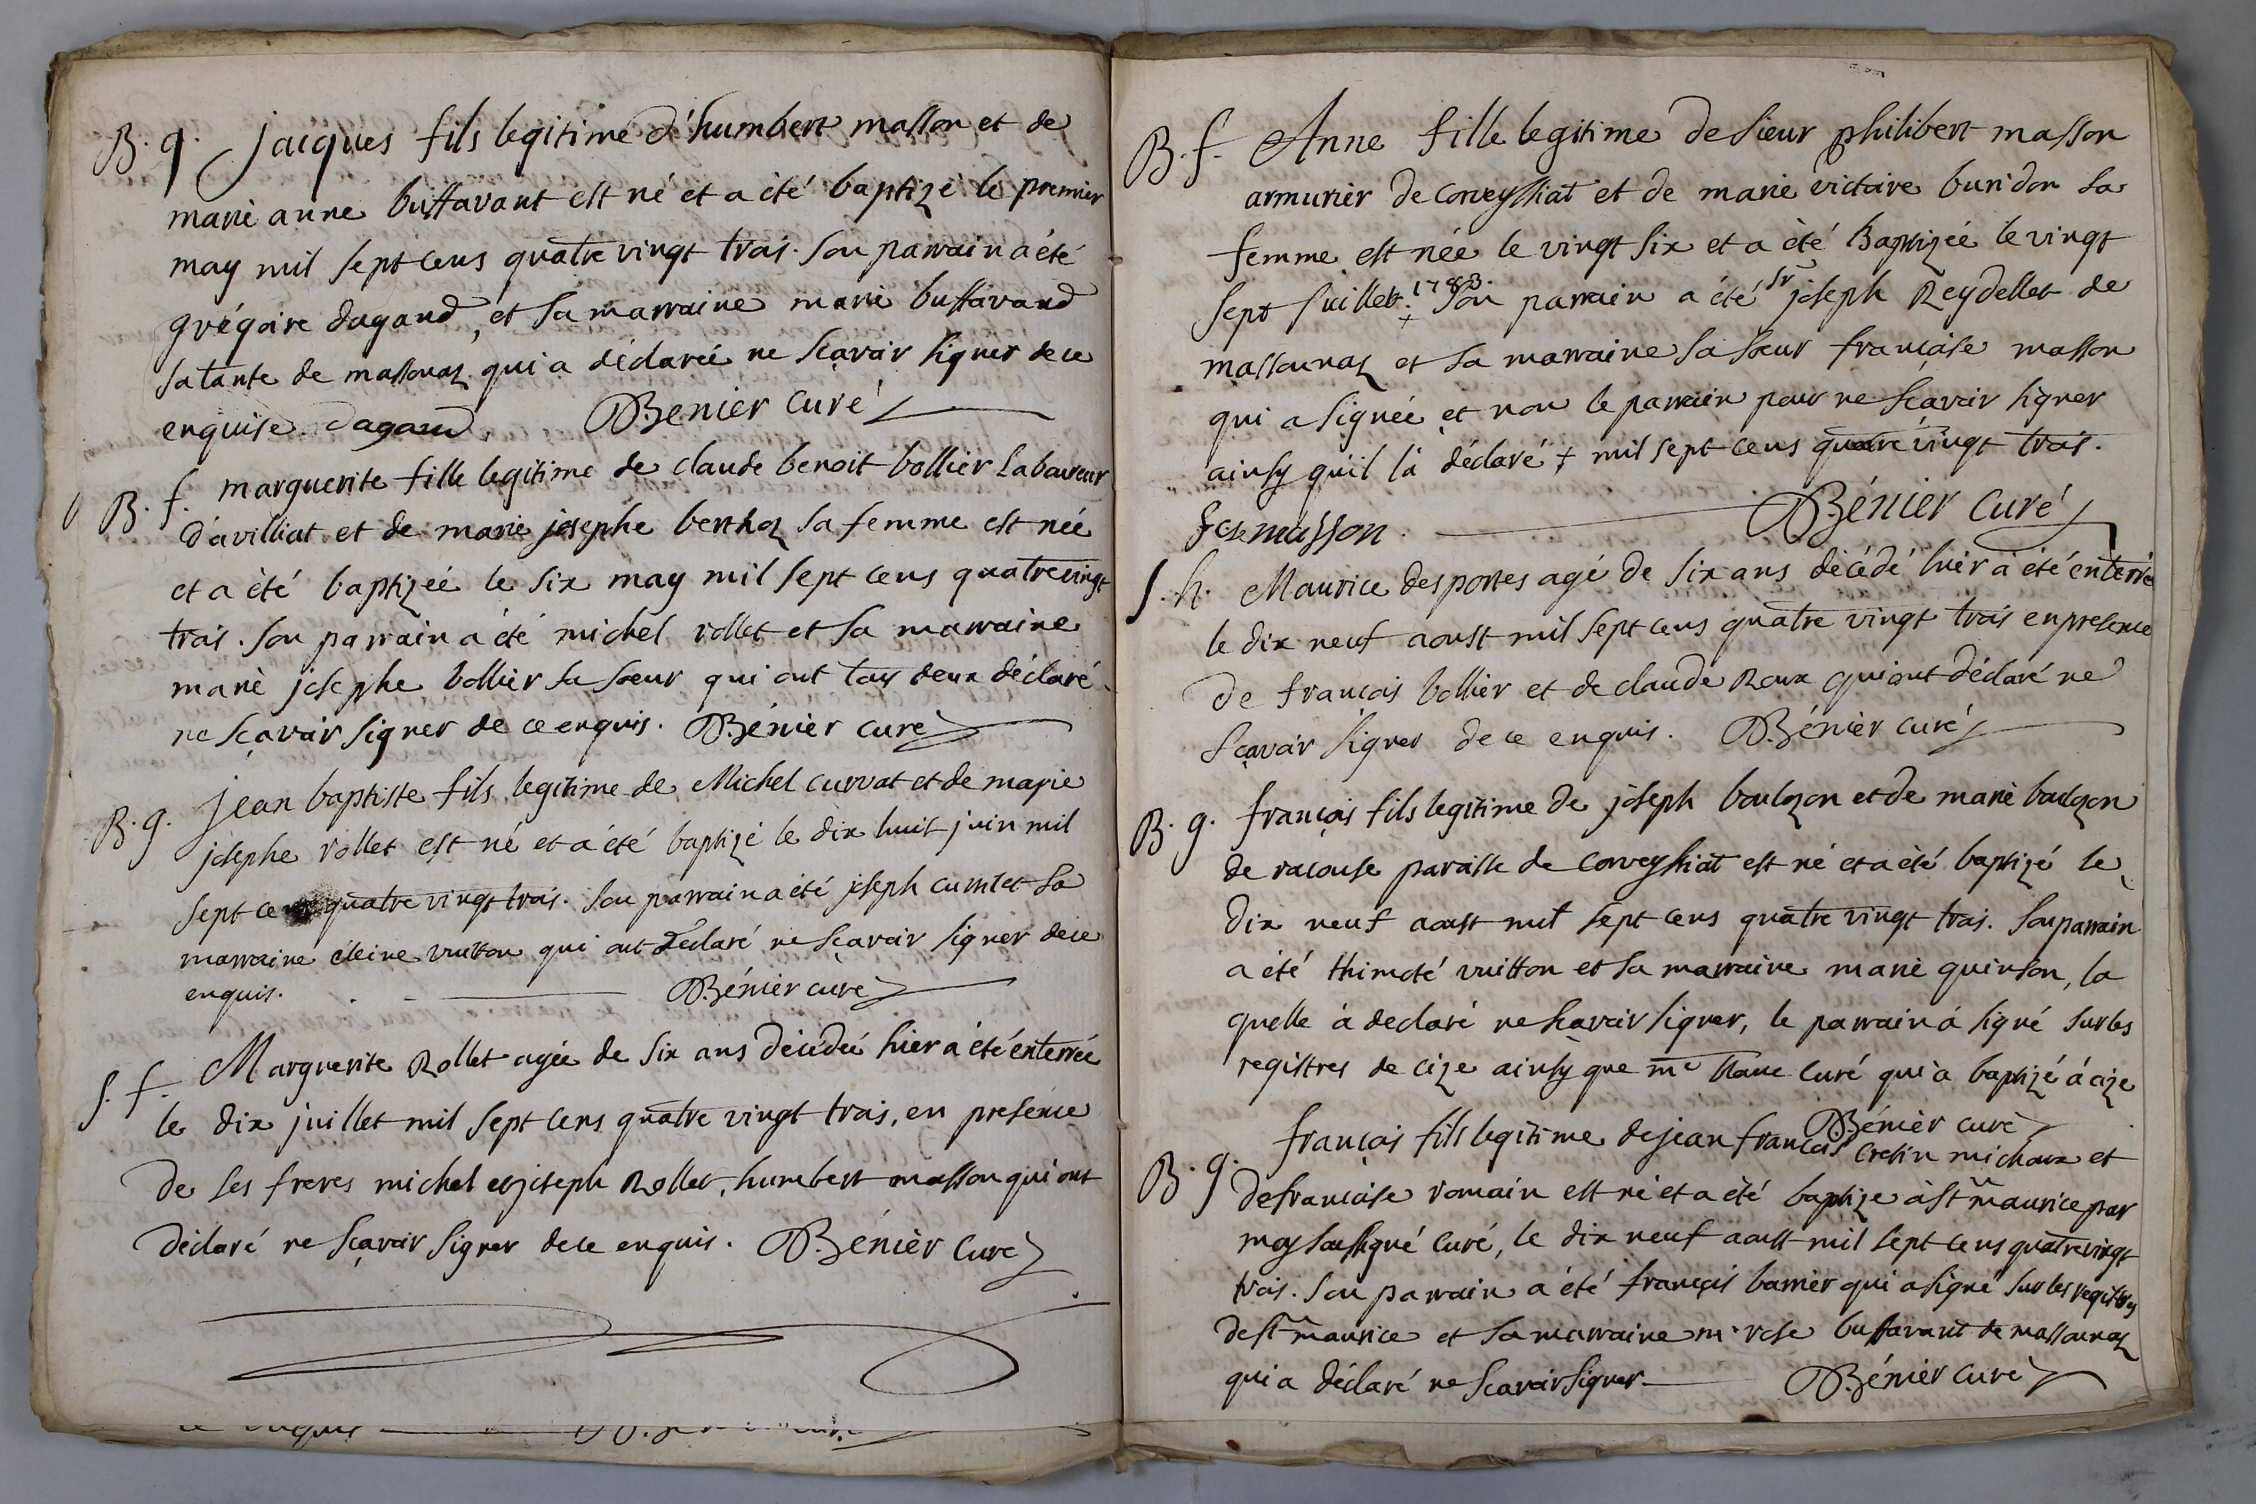 B. g. Jacques fils legitime d'humbert masson et de
marie anne buffavant est né et a été baptizé le premier
may mil sept cens quatre vingt trois. son parrain a été
grégoire dagand, et sa marraine marie buffavand
sa tante de massonaz qui a déclarée ne sçavoir signer de ce
enquise. Dagand. Bénier curé
B. f. marguerite fille legitime de claude benoit bollier laboureur
d'avilliat et de marie josephe berthoz sa femme est née
et a été baptizée le six may mil sept cens quatrevingt
trois. son parrain a été michel rollet et sa marraine
marie josephe bollier sa soeur qui ont tous deux déclaré
ne sçavoir signer de ce enquis. Bénier curé
B. g. Jean baptiste fils legitime de Michel curvat et de marie
josephe rollet est né et a été baptizé le dix huit juin mil
sept quatre vingt trois. son parrain a été joseph et sa
marraine qui ont déclaré ne sçavoir signer de ce
enquis. Bénier curé
S. f. Marguerite Rollet agée de six ans décédée hier a été enterrée
le dix juillet mil sept cens quatre vingt trois, en presence
de ses freres michel et joseph Rollet, humbert masson qui ont
déclaré ne sçavoir signer de ce enquis. Bénier curé
B. f. Anne fille legitime de sieur philibert masson
armurier de corveyssiat et de marie victoire buridon sa
femme est née le vingt six et a été Baptizée le vingt
sept juillet. 1783. + son parrain a été sr joseph Reydellet de
massounaz et sa marraine sa soeur françoise masson
qui a signée et non le parrain pour ne sçavoir signer
ainsy qu'il l'a déclaré + mil sept cens quatre vingt trois.
fse masson Bénier curé
S. h. Maurice desportes agé de six ans décédé hier a été enterré
le dix neuf aoust mil sept cens quatre vingt trois en presence
de françois bollier et de claude Roux qui ont déclaré ne
sçavoir signer de ce enquis. Bénier curé
B. g. françois fils legitime de joseph boulzon et de marie boulzon
de racouse paroisse de corveyssiat est né et a été baptizé le
dix neuf aoust mil sept cens quatre vingt trois. son parrain
a été thimoté vuitton et sa marraine marie quinson, la
quelle à declaré ne sçavoir signer, le parrain á signé sur les
registres de cize ainsy que mre curé qui a baptizé á cize
Bénier curé
B. g. françois fils legitime de jean françois cretin michoux et
de françoise romain est né et a été baptize à st maurice par
moy soussigné curé, le dix neuf aoust mil sept cens quatrevingt
trois. son parrain a été françois barrier qui a signé sur les registres
de st maurice et sa marraine me rose buffavant de massounaz
qui a déclaré ne sçavoir signer. Bénier curé